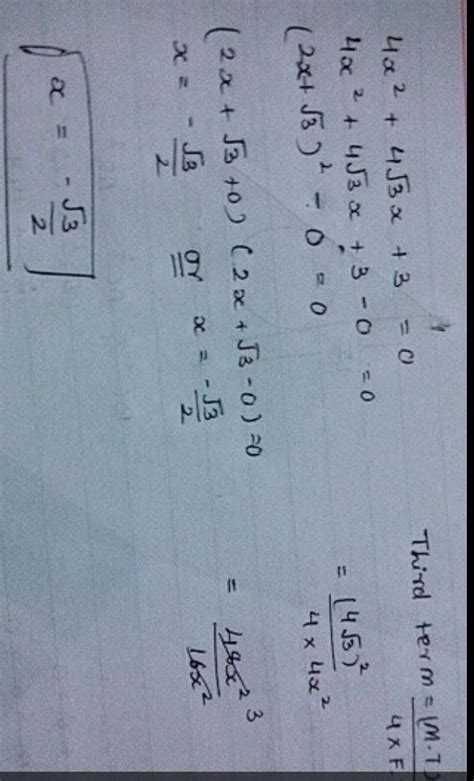 4x² + 4√3x + 3 = 0
4x² + 4√3x + 3 - 0 = 0
(2x + √3)² - 0 = 0
(2x + √3 + 0) (2x + √3 - 0) = 0
x = -√3/2 or x = -√3/2
x = -√3/2
Third term = (M.T)
4 x F
= (4√3)²
4 x 4x²
= 48x² 3
16x²